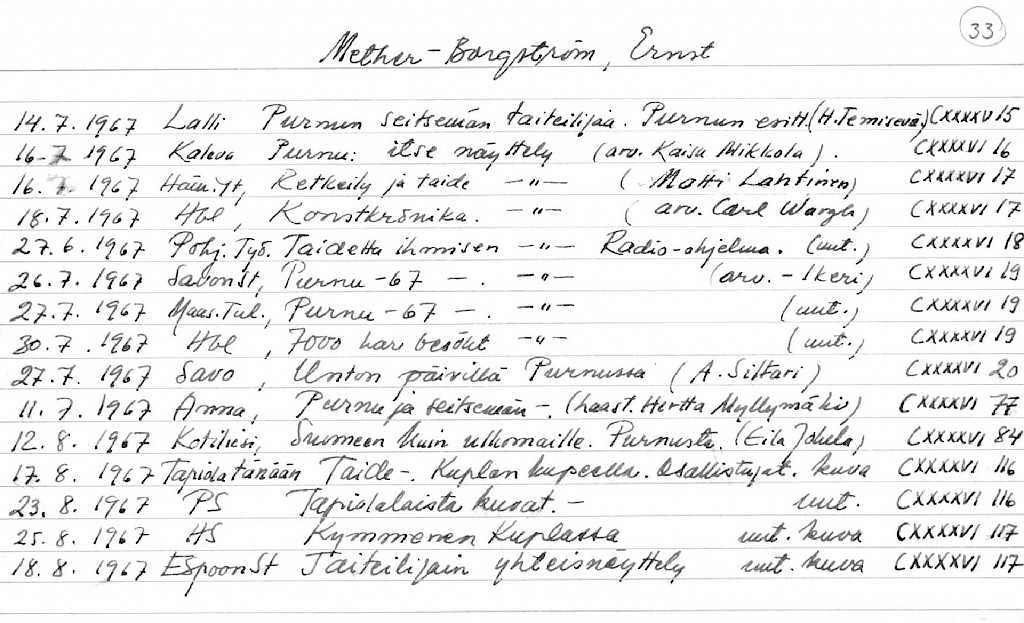 33
Mether-Borgström, Ernst
14.7.1967 Lalli Purnun seitsemän taiteilijaa. Purnun esitt. (H. Temisevä) CXXXXV 15
16.7 1967 Kaleva Purnu: itse näyttely (arv. Kaisu Mikkola). CXXXXVI 16
16.7.1967 Häm.Yt, Retkeily ja taide -"- (Matti Lahtinen) CXXXXVI 17
18.7.1967 Hbl, Konstkrönika. -"- (arv. Carl) CXXXXVI 17
27.6.1967 Pohj.Työ. Taidetta ihmisen -"- Radio-ohjelma. (uut.) CXXXXVI 18
26.7.1967 SavonSt, Purnu-67 -. -"- (arv. - Ikeri) CXXXXVI 19
27.7.1967 Maas.Tul., Purnu-67 -. -"- (uut.) CXXXXVI 19
30.7.1967 Hbl, 7000 har besökt -"- (uut.) CXXXXVI 19
27.7.1967 Savo, Unton päivillä Purnussa (A. Siltari) CXXXXVI 20
11.7.1967 Anna, Purnu ja seitsemän -. (haast. Hertta Myllymäki) CXXXXVI 77
12.8.1967 Kotiliesi, Suomeen kuin ulkomaille. Purnusta. (Eila Jokela) CXXXXVI 84
17.8.1967 Tapiola tänään Taide-. Kuplan kupeella. Osallistujat. kuva CXXXXVI 116
23.8.1967 PS Tapiolalaista kuvat. - uut. CXXXXVI 116
25.8.1967 HS Kymmenen Kuplassa uut. kuva CXXXXVI 117
18.8.1967 EspoonSt Taiteilijain yhteisnäyttely uut. kuva CXXXXVI 117